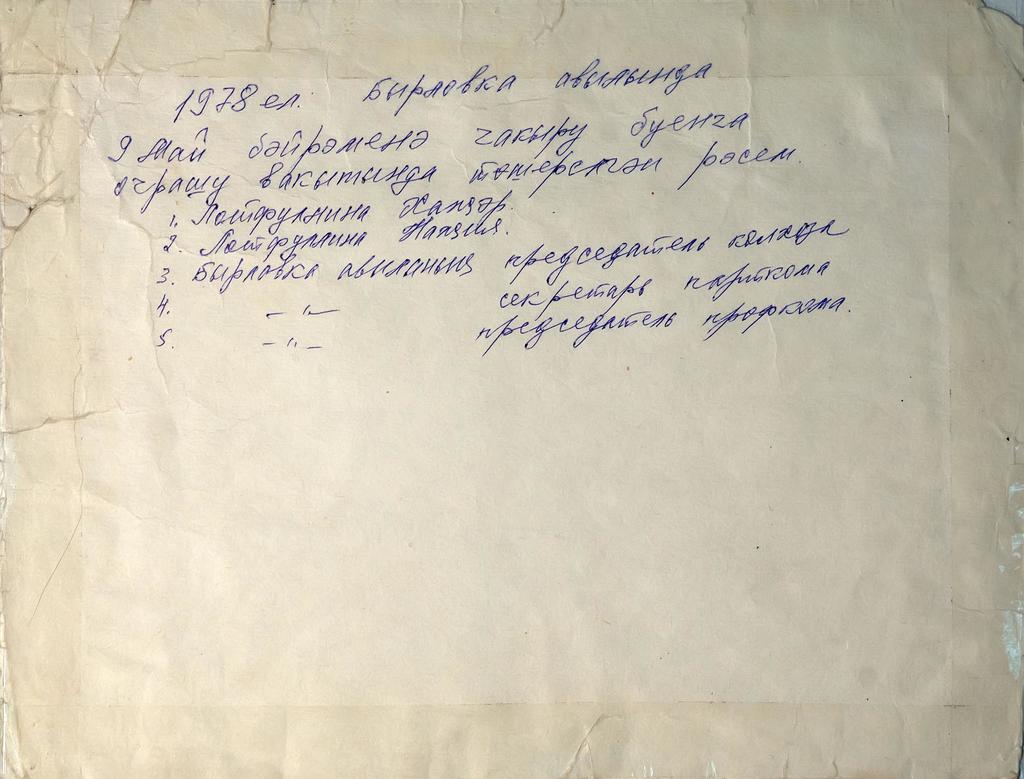 1978 ел. Бырловка авылында
9 Май бәйрәменә чакыру буенча
очрашу вакытында төшерелгән рәсем.
1. Лотфуллина Хаҗәр.
2. Лотфуллина Наҗия.
3. Бырловка авыланың председатель колхоза
4. —〃— секретарь парткома
5. —〃— председатель профкома.